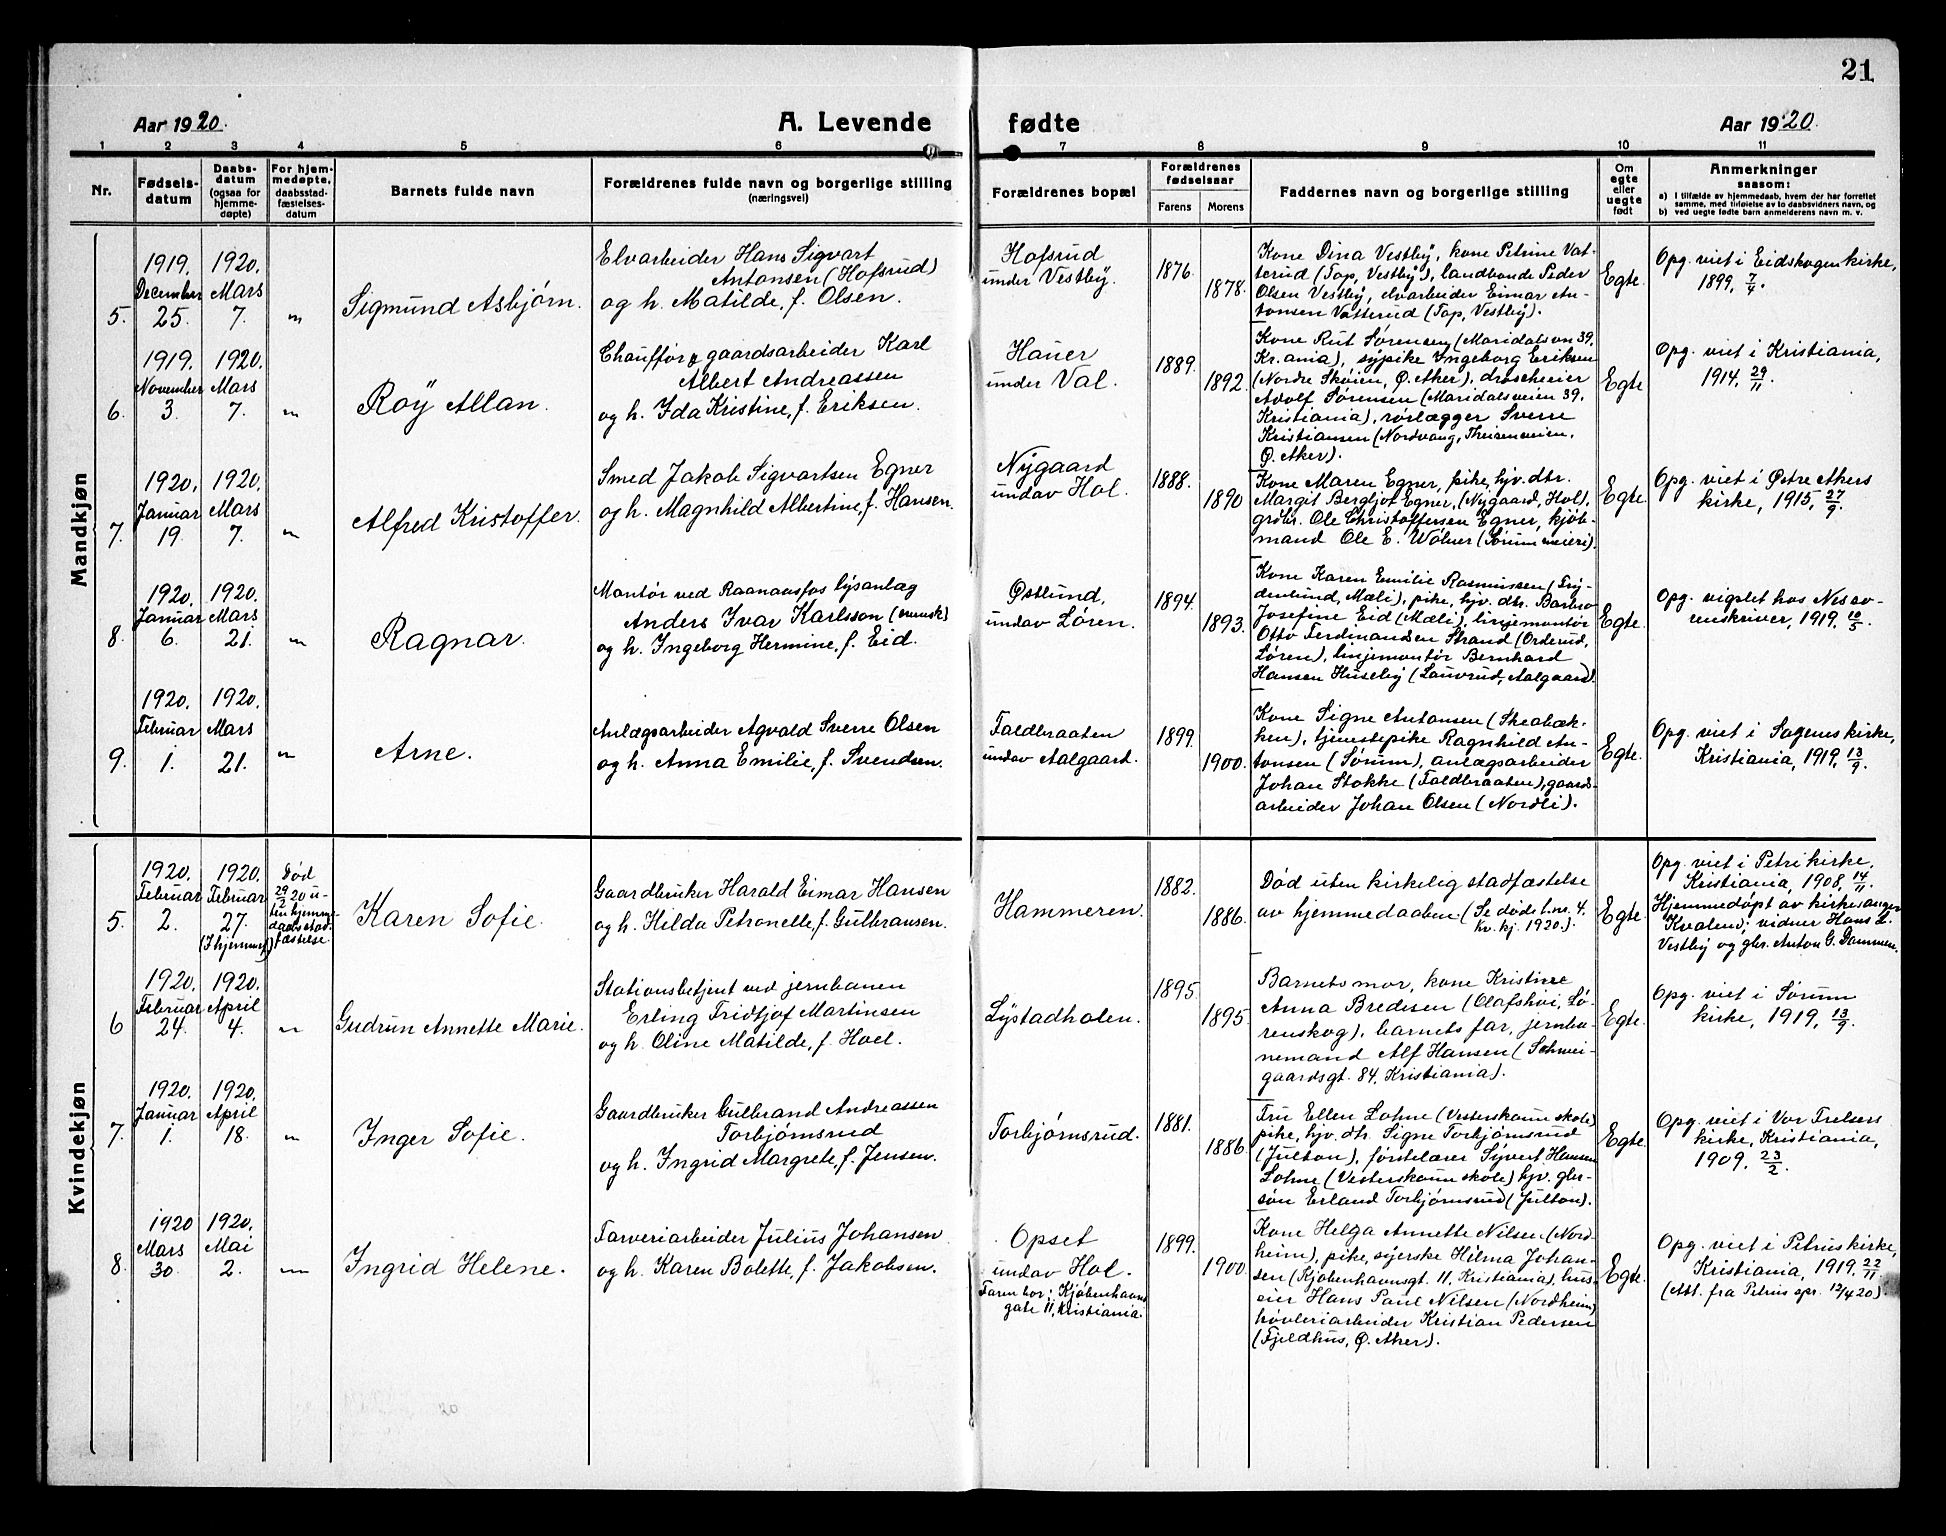 21
Aar 1920.
A. Levende
fødte
Aar 1920.
1 2 3 4 5 6 7 8 9 10 11
Nr.
Fødsels-
datum
Daabs-
datum
(ogsaa for
hjemme-
døpte)
For hjem-
medøpte,
daabsstad-
fæstelses-
datum
Barnets fulde navn
Forældrenes fulde navn og borgerlige stilling
(næringsvei)
Forældrenes bopæl
Forældrenes
fødselsaar
Farens
Morens
Faddernes navn og borgerlige stilling
Om
egte
eller
uegte
født
Anmerkninger
saasom:
a) I tilfælde av hjemmedaab, hvem der har forrettet
samme, med tilføielse av to daabsvidners navn, og
b) ved uegte fødte barn anmelderens navn m. v.
Mandkjøn
5.
1919.
December
25.
1920.
Mars
7.
"
Sigmund Asbjørn.
Elvarbeider Hans Sigvart
Antonsen (Hofsrud)
og h. Matilde, f. Olsen.
Hofsrud
under Vestby.
1876.
1878.
Kone Dina Vestby, kone Petrine Vat-
terud (Top, Vestby), landbonde Peder
Olsen Vestby, elvarbeider Eimar An-
tonsen Vatterud (Top, Vestby).
Egte.
Opg. viet i Eidskogen kirke,
1899, 7/4.
6.
1919.
November
3.
1920.
Mars
7.
"
Roÿ Allan.
Chauffør og gaardsarbeider Karl
Albert Andreassen
og h. Ida Kristine, f. Eriksen.
Hauer
under Val.
1889.
1892.
Kone Rut Sørensen (Maridalsvn 39,
Kr.ania), sypike Ingeborg Eriksen
(Nordre Skøien, Ø. Aker), droscheeier
Adolf Sørensen (Maridalsveien 39,
Kristiania), rørlægger Sverre
Kristiansen (Nordvang, Theisenveien,
Ø. Aker).
Egte
Opg. viet i Kristiania,
1914, 29/11.
7.
1920.
Januar
19.
1920.
Mars
7.
"
Alfred Kristoffer.
Smed Jakob Sigvartsen Egner
og h. Magnhild Albertine, f. Hansen.
Nygaard
undav Hol.
1888.
1890
Kone Maren Egner, pike, hjv. dtr.
Margit Bergljot Egner, (Nygaard, Hol),
grøbr. Ole Christoffersen Egner, kjøb-
mand Ole E. Wølner (Sørum meieri).
Egte
Opg. viet i Østre Akers
kirke, 1915, 27/9.
8.
1920.
Januar
6.
1920.
Mars
21.
"
Ragnar.
Montør ved Raanaasfos lysanlæg
Anders Ivar Karlsson (svensk)
og h. Ingeborg Hermine, f. Eid.
Østlund,
undav Løren.
1894.
1893.
Kone Karen Emilie Rasmussen (Fry-
denlund, Mæli), pike, hjv. dtr. Barbro
Josefine Eid (Mæli), linjemontør
Otto Ferdinandsen Strand (Orderud,
Løren), linjemontør Bernhard
Hansen Huseby (Lauvrud, Aalgaard).
Egte
Opg. vigslet hos Nesso-
renskriver, 1919, 10/5.
9.
1920.
Februar
1.
1920.
Mars
21.
"
Arne.
Anlægsarbeider Agvald Sverre Olsen
og h. Anna Emilie, f. Svendsen.
Faldbraaten
undav Aalgaard.
1899.
1900.
Kone Signe Antonsen (Skeabæk-
ken), tjenestepike Ragnhild An-
tonsen (Sørum), anlægsarbeider
Johan Stokke (Faldbraaten), gaards-
arbeider Johan Olsen (Nordli).
Egte.
Opg. viet i Sagenes kirke,
Kristiania, 1919, 13/9.
Kvindekjøn
5.
1920.
Februar
2.
1920.
Februar
27.
(I hjemmet)
Død
29/2 20 u-
ten hjemme-
daabsstad-
fæstelse.
Karen Sofie.
Gaardbruker Harald Eimar Hansen
og h. Hilda Petronelle, f. Gulbransen.
Hammeren.
1882.
1886.
Død uten kirkelig stadfæstelse
av hjemmedaaben (Se døde l.nr. 4.
Kv. kj. 1920.).
Egte
Opg. viet i Petri kirke,
Kristiania, 1908, 14/11.
Hjemmedøpt av kirkesanger
Kvalen; vidner Hans L.
Vestby og gbr. Anton G. Dammen.
6
1920.
Februar
24.
1920.
April
4.
"
Gudrun Annette Marie.
Stationsbetjent ved jernbanen
Erling Fridtjof Martinsen
og h. Oline Matilde, f. Hoel.
Lystadholen.
1895.
1895.
Barnets mor, kone Kristine
Anna Bredesen (Olafshøi, Lø-
renskog), barnets far, jernba-
nemand Alf Hansen (Schwei-
gaardsgt. 84, Kristiania).
Egte.
Opg. viet i Sørum
kirke, 1919, 13/9.
7.
1920.
Januar
1.
1920.
April
18.
"
Inger Sofie.
Gaardbruker Gulbrand Andreassen
Torbjørnsrud
og h. Ingrid Margrete, f. Jensen.
Torbjørnsrud.
1881.
1886.
Fru Ellen Lohne (Vesterskaun skole)
pike, hjv. dtr. Signe Torbjørnsrud
(Julton), førstelærer Syvert Hansen
Lohne (Vesterskaun skole) hjv. gbr-
søn Erland Torbjørnsrud (Julton).
Egte.
Opg. viet i Vor Frelsers
kirke, Kristiania,
1909, 23/2.
8.
1920
Mars
30.
1920.
Mai
2.
"
Ingrid Helene.
Farveriarbeider Julius Johansen
og h. Karen Bolette, f. Jakobsen.
Opset
undav Hol.
Faren bor: Kjøbenhavns
gate 11, Kristiania.
1899.
1900.
Kone Helga Annette Nilsen (Nord-
heim), pike, syerske Hilma Johan-
sen (Kjøbenhavnsgt. 11, Kristiania), hus-
eier Hans Paul Nilsen (Nordheim)
høvleriarbeider Kristian Pedersen
(Fjeldhus, Ø. Aker).
Egte.
Opg. viet i Petrus kirke,
Kristiania, 1919, 22/11
(Att. fra Petrus spr. 12/4 20)